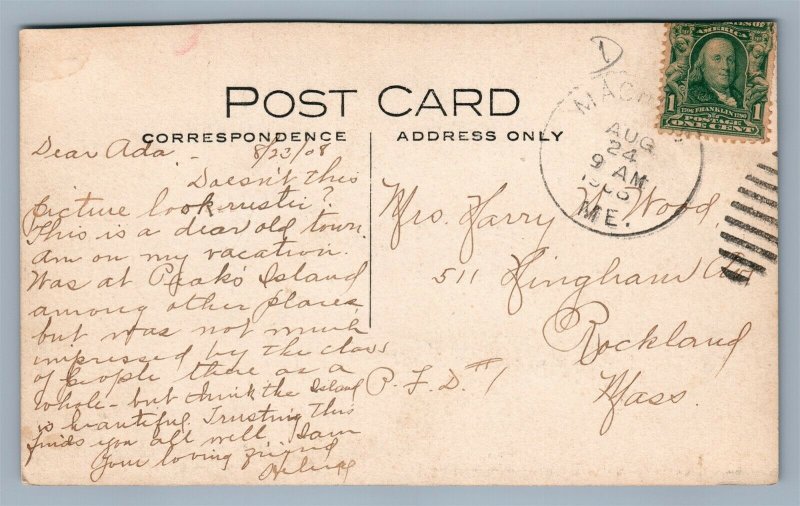 POST CARD
CORRESPONDENCE
ADDRESS ONLY
Dear Ada - 8/23/08
Doesn't this
picture look rustic?
This is a dear old town.
am on my vacation.
Was at Peak's Island
among other places,
but was not much
impressed by the class
of people there as a
whole - but think the Island
is beautiful. Trusting this
finds you all well, I am
Your loving friend
Mrs. Harry Wood
511 Hingham
Rockland
Mass.
R.F.D. #1
AUG
24
9 AM
1908
ME.
AMERICA
1 FRANKLIN 1
POSTAGE
ONE CENT